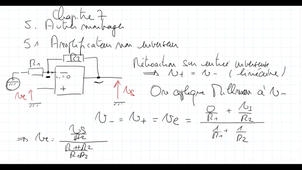 Chapitre 7
5. Autres montages
5.1 Amplificateur non inverseur
R2
R1
Rétroaction sur entrée inverseuse
⇒ v+ = v- (linéaire)
ve
vs
On applique Millman à v-
v- = v+ = ve = (0/R1 + vs/R2) / (1/R1 + 1/R2)
⇒ ve = (vs/R2) / ((R1+R2)/(R1R2))